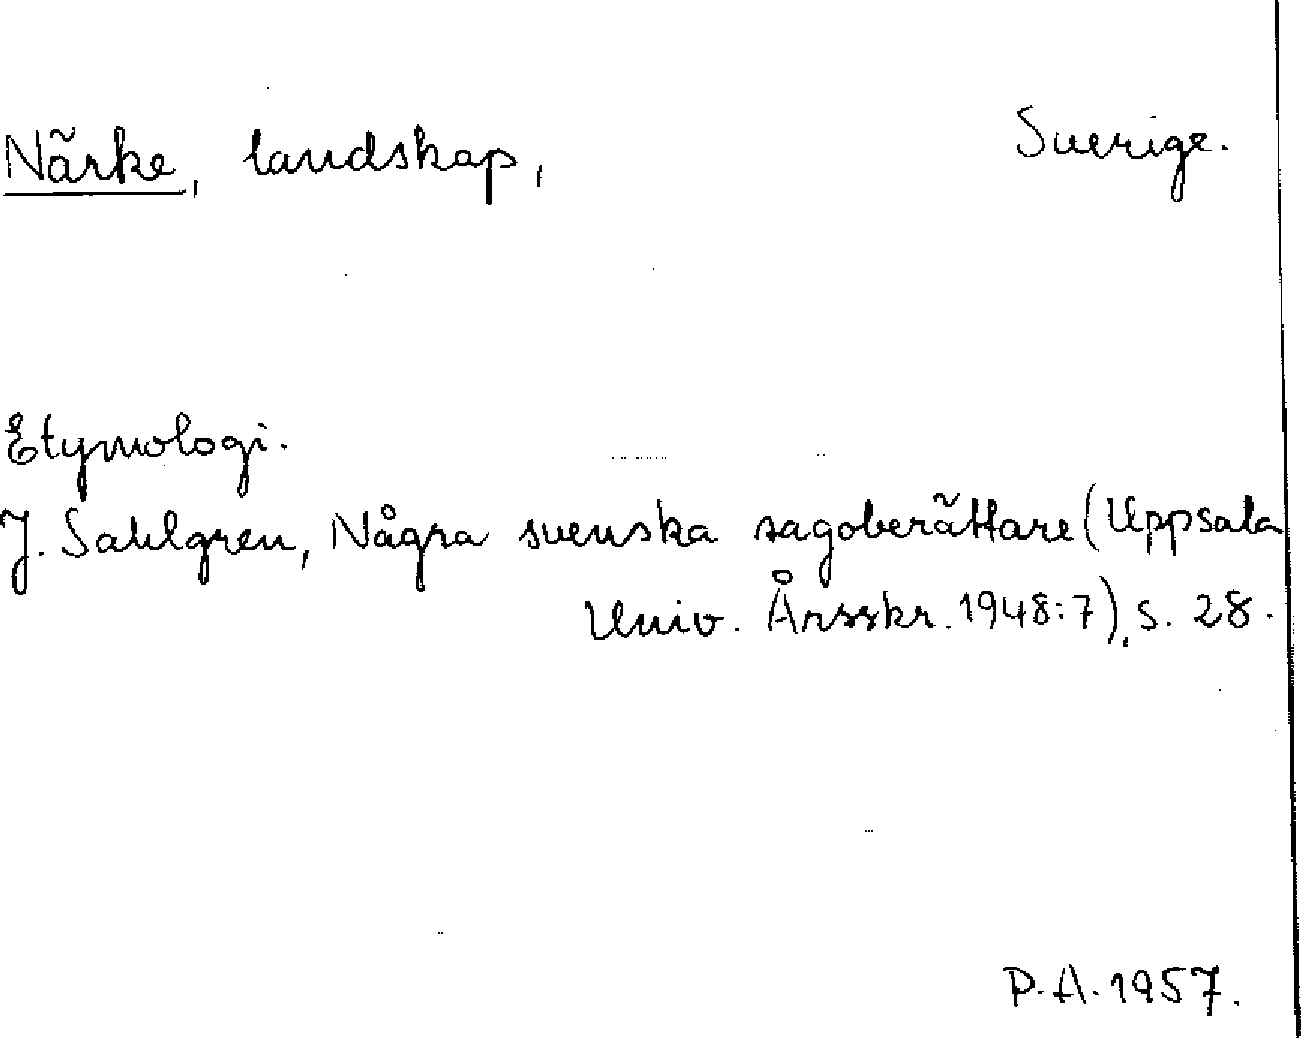 Närke, landskap, Sverige.
Etymologi.
J. Sahlgren, Några svenska sagoberättare (Uppsala
Univ. Årsskr. 1948:7), s. 28.
P. A. 1957.